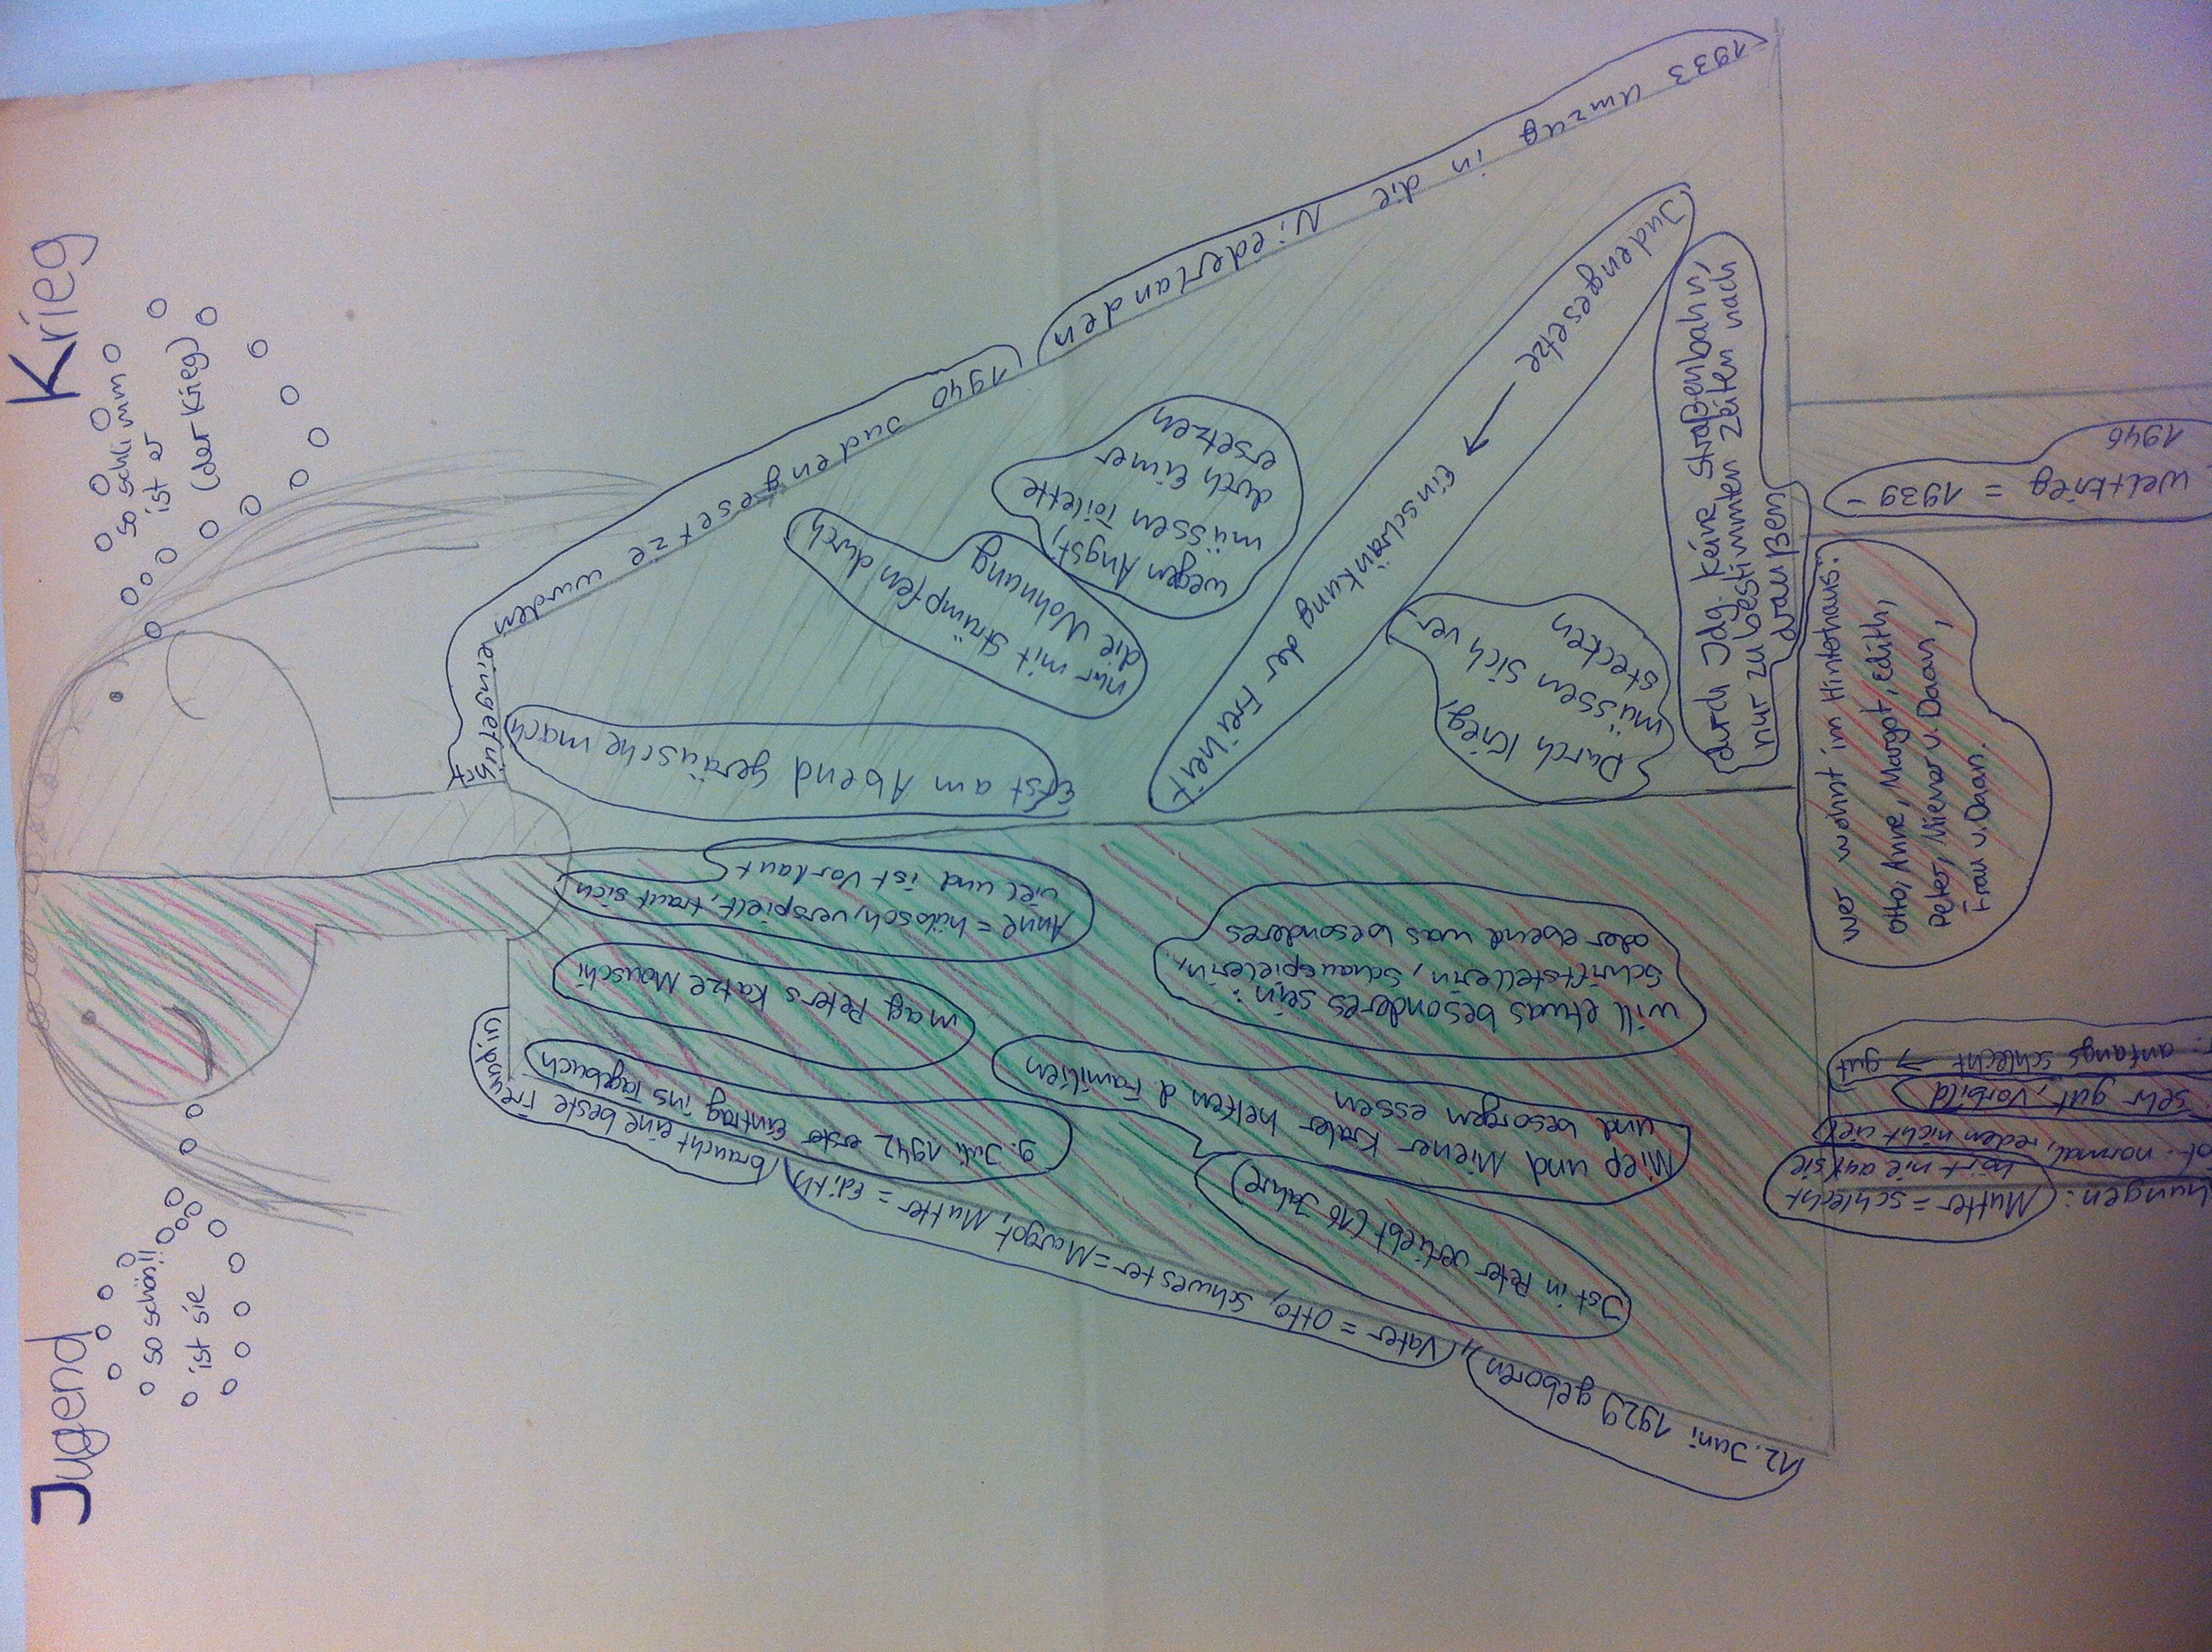 Jugend
Krieg
so schön!!
ist sie
so schlimm
ist er
(der Krieg)
12. Juni 1929 geboren,
Vater = Otto, Schwester = Margot, Mutter = Edith
braucht eine beste Freundin
9. Juli 1942 erster Eintrag ins Tagebuch
mag Peters Katze Mouschi
Anne = hübsch, verspielt, traut sich
viel und ist vorlaut
Ist in Peter verliebt (16 Jahre)
Miep und Miener Kraler helfen d Familien
und besorgen essen
will etwas besonderes sein:
Schriftstellerin, Schauspielerin,
oder ebend was besonderes
1933 Umzug in die Niederlanden
1940 Judengesetze wurden eingefüsrt
Erst am Abend Geräusche mach
nur mit Strümpfen durch
die Wohnung
wegen Angst,
müssen Toilette
durch Eimer
ersetzen
Judengesetze → Einschränkung der Freiheit
Durch Krieg,
müssen sich ver
stecken
durch Jdg. keine Straßenbahn,
nur zu bestimmten Zeiten nach
draußen
Weltkrieg = 1939 -
1946
wer wohnt im Hintehaus:
Otto, Anne, Margot, Edith,
Peter, Miener v. Daan,
Frau v. Daan.
hungen: Mutter = schlecht
hört nie auf sie
ot: normal, reden nicht viel
sehr gut, Vorbild
: anfangs schlecht → gut